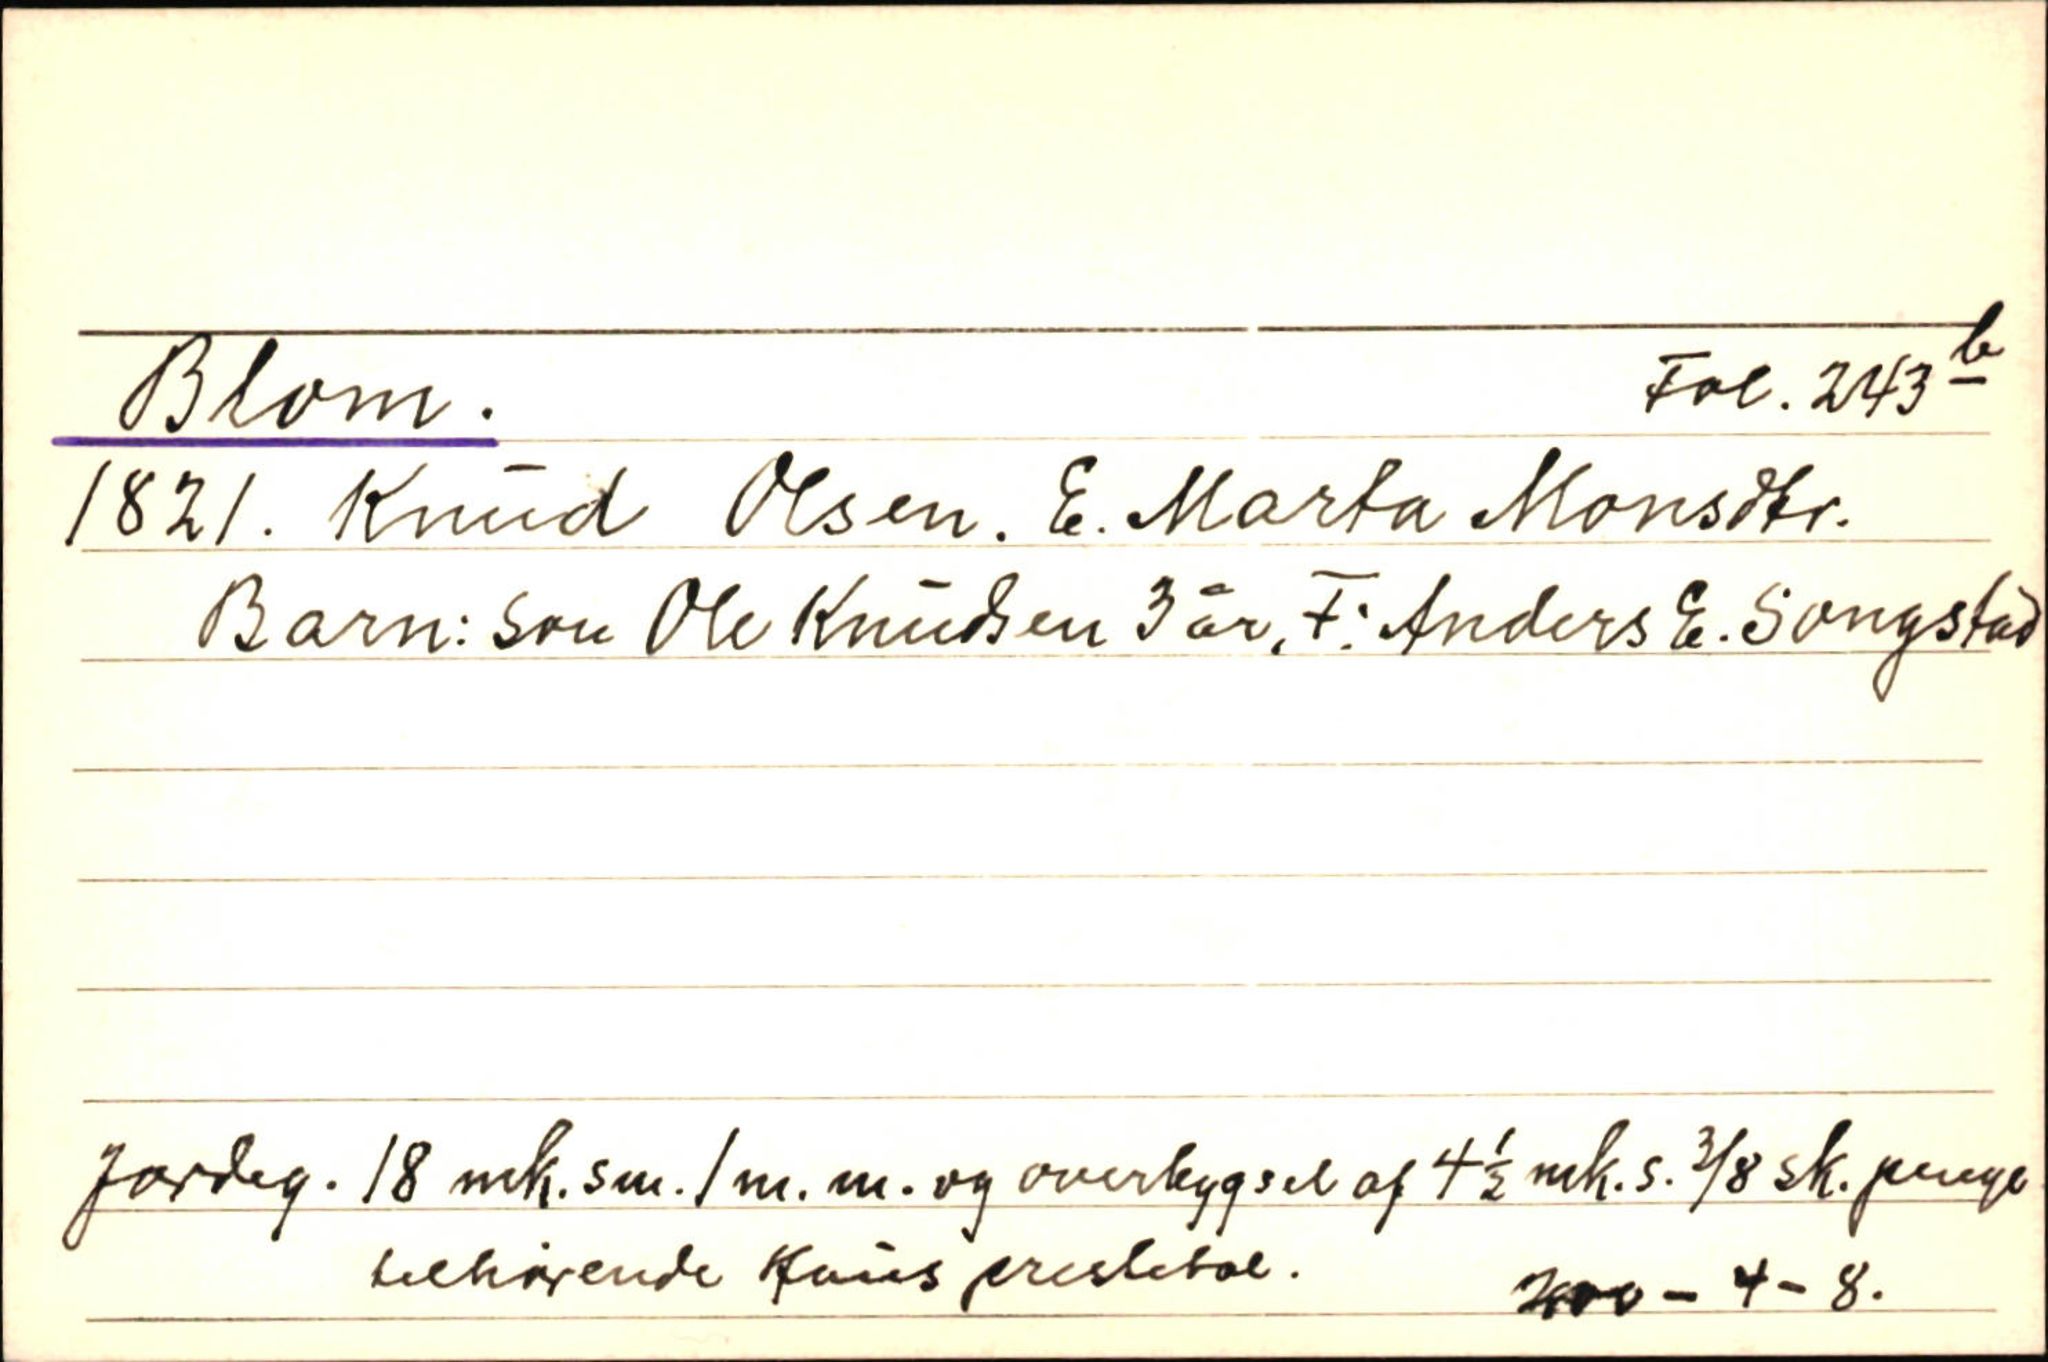 Blom. Fol. 243 b
1821. Knud Olsen. E. Marta Monsdtr.
Barn: Son Ole Knudsen 3 år, F: Anders E. Songstad
Jordeg. 18 mk. sm. 1 m. m. og overbygsel af 4 1/2 mk. s. 3/8 sk. penge
tilhørende Haus prestebol. 200 - 4 - 8.